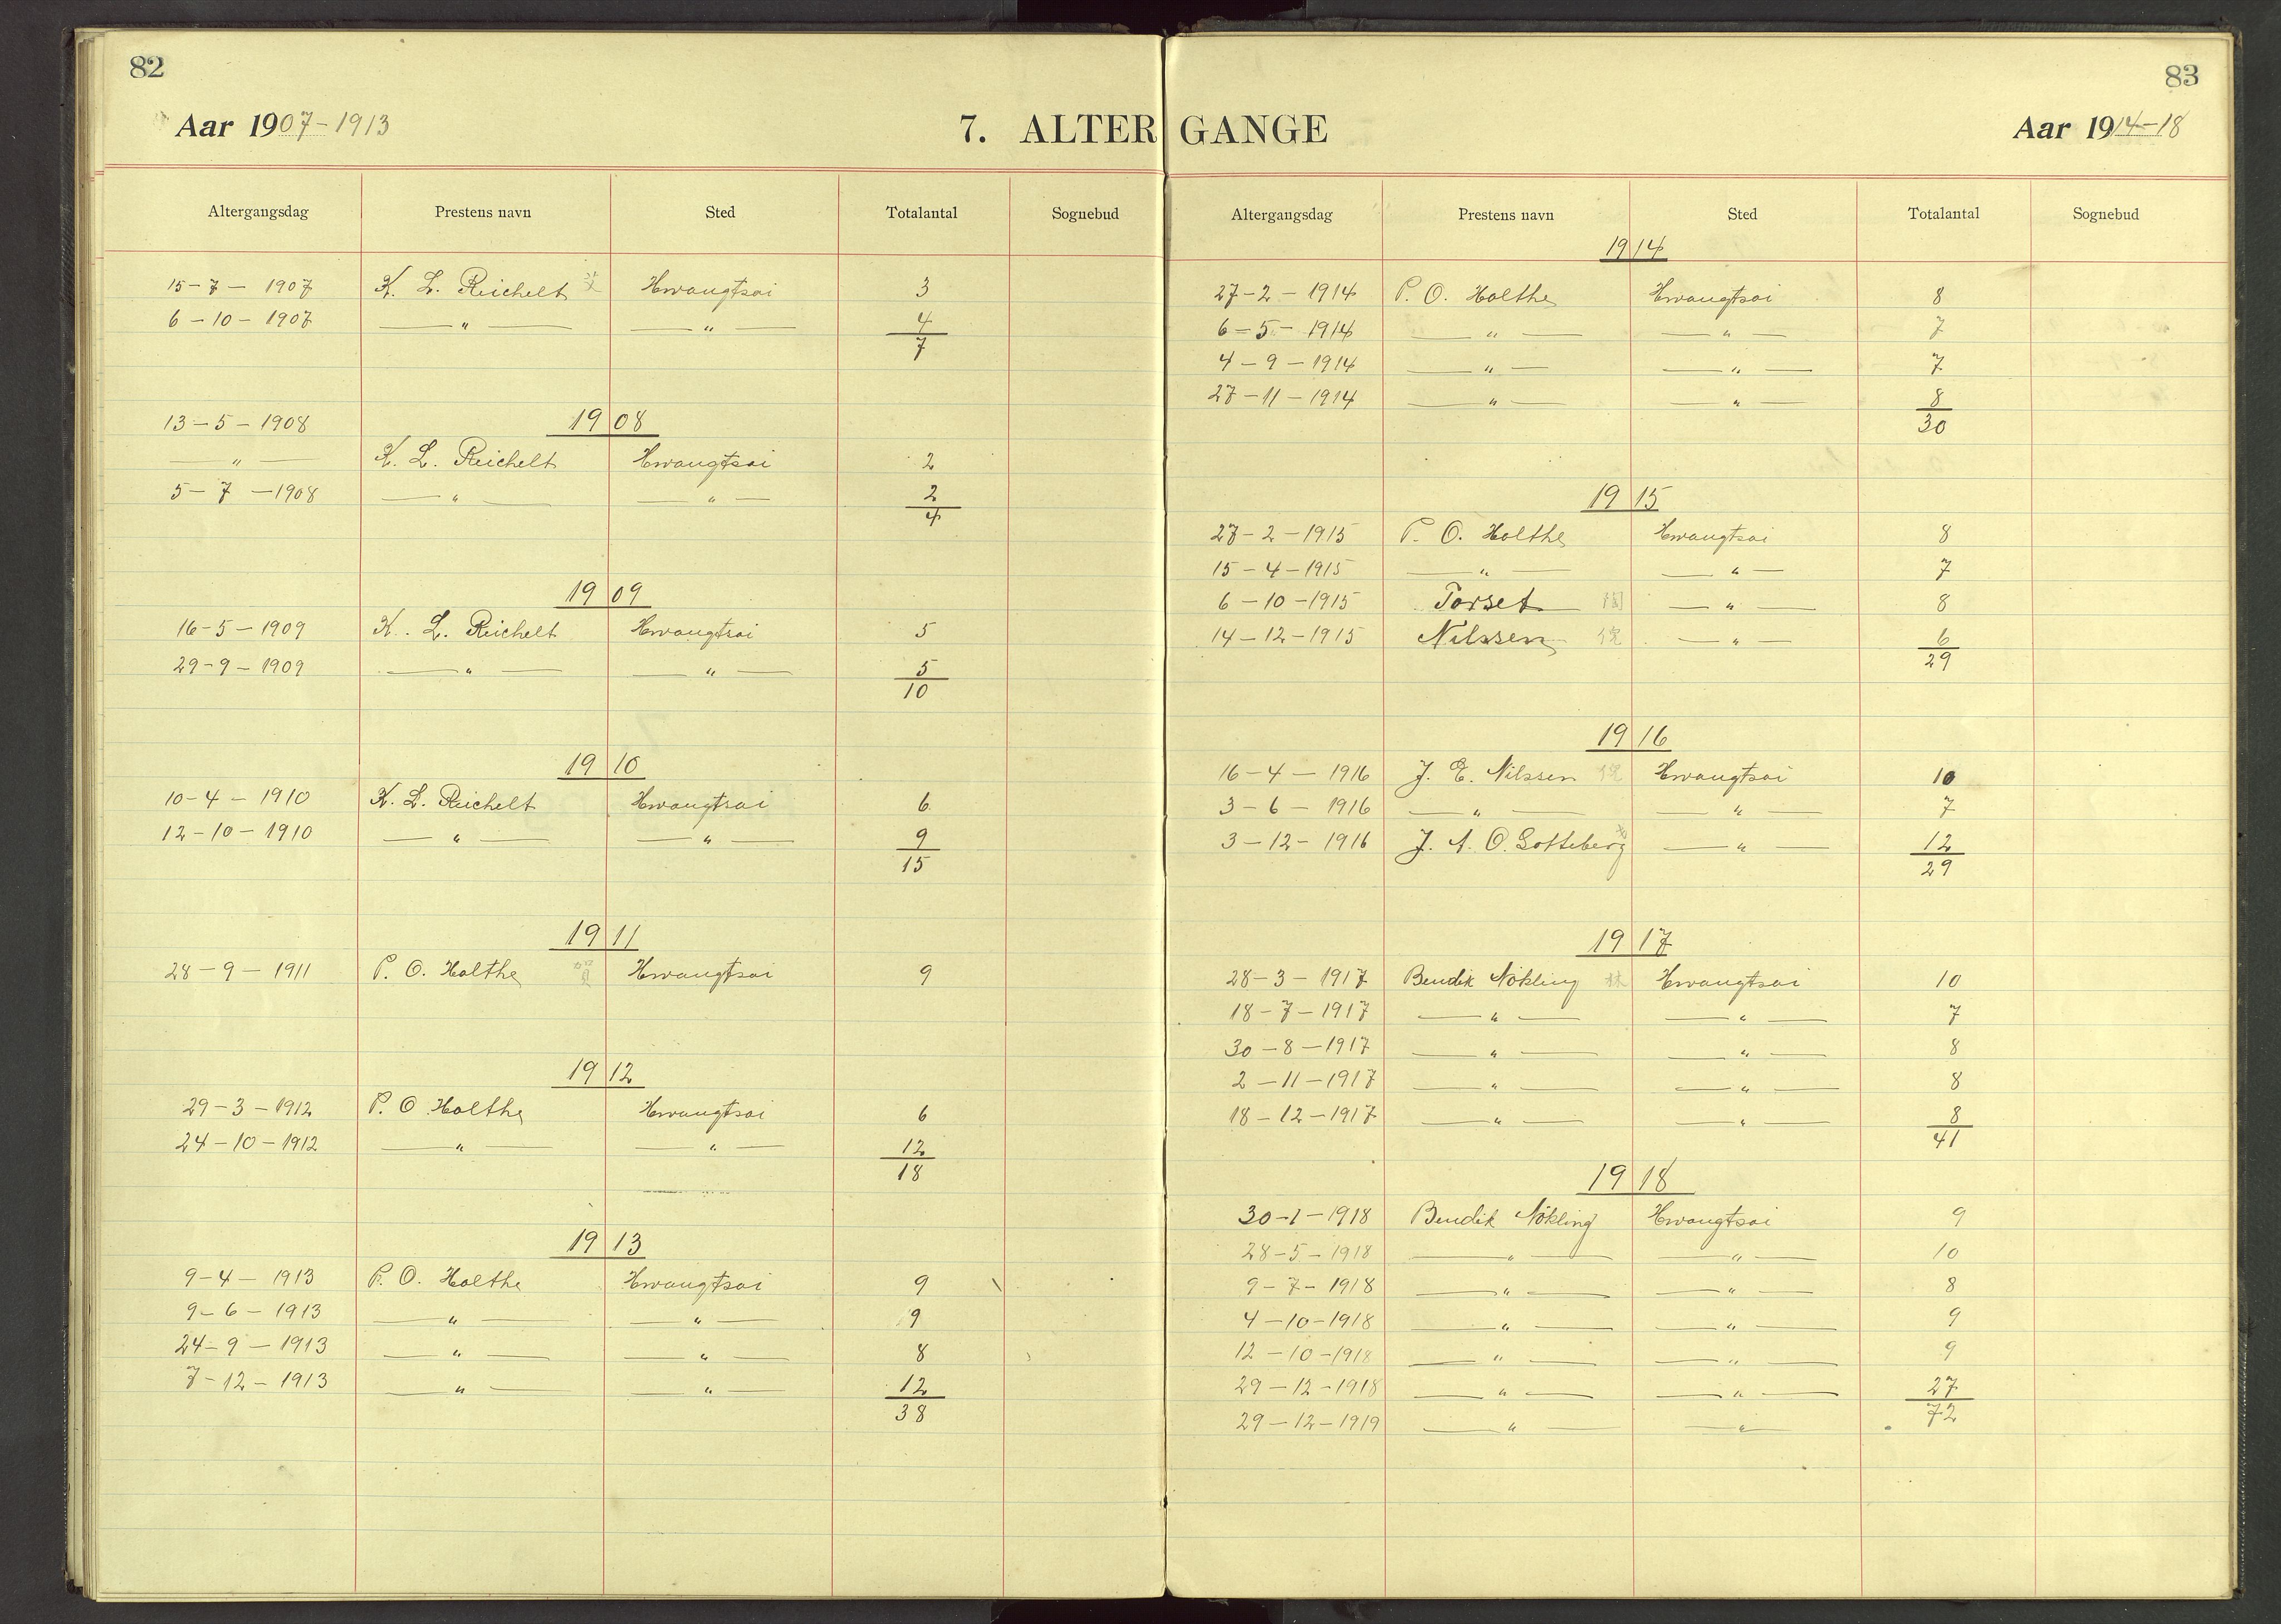 82
Aar 1907-1913
7. ALTER
Altergangsdag Prestens navn Sted Totalantal Sognebud
15-7-1907 K. L. Reichelt Hwangtsai 3
6-10-1907 —"— —"— 4
7
13-5-1908 1908
—"— K. L. Reichelt Hwangtsai 2
5-7-1908 —"— —"— 2
4
1909
16-5-1909 K. L. Reichelt Hwangtsai 5
29-9-1909 —"— —"— 5
10
1910
10-4-1910 K. L. Reichelt Hwangtsai 6
12-10-1910 —"— —"— 9
15
1911
28-9-1911 P. O. Holthe Hwangtsai 9
1912
29-3-1912 P. O. Holthe Hwangtsai 6
24-10-1912 —"— —"— 12
18
1913
9-4-1913 P. O. Holthe Hwangtsai 9
9-6-1913 —"— —"— 9
24-9-1913 —"— —"— 8
7-12-1913 —"— —"— 12
38
83
GANGE
Aar 1914-18
Altergangsdag Prestens navn Sted Totalantal Sognebud
1914
27-2-1914 P. O. Holthe Hwangtsai 8
6-5-1914 —"— —"— 7
4-9-1914 —"— —"— 7
27-11-1914 —"— —"— 8
30
1915
27-2-1915 P. O. Holthe Hwangtsai 8
15-4-1915 —"— —"— 7
6-10-1915 Torset —"— 8
14-12-1915 Nilssen 倪 —"— 6
29
1916
16-4-1916 J. E. Nilssen 倪 Hwangtsai 10
3-6-1916 —"— —"— 7
3-12-1916 J. A. O. Gotteberg —"— 12
29
1917
28-3-1917 Bendik Nökling 林 Hwangtsai 10
18-7-1917 —"— —"— 7
30-8-1917 —"— —"— 8
2-11-1917 —"— —"— 8
18-12-1917 —"— —"— 8
41
1918
30-1-1918 Bendik Nökling Hwangtsai 9
28-5-1918 —"— —"— 10
9-7-1918 —"— —"— 8
4-10-1918 —"— —"— 9
12-10-1918 —"— —"— 9
29-12-1918 —"— —"— 27
72
29-12-1919 —"— —"—